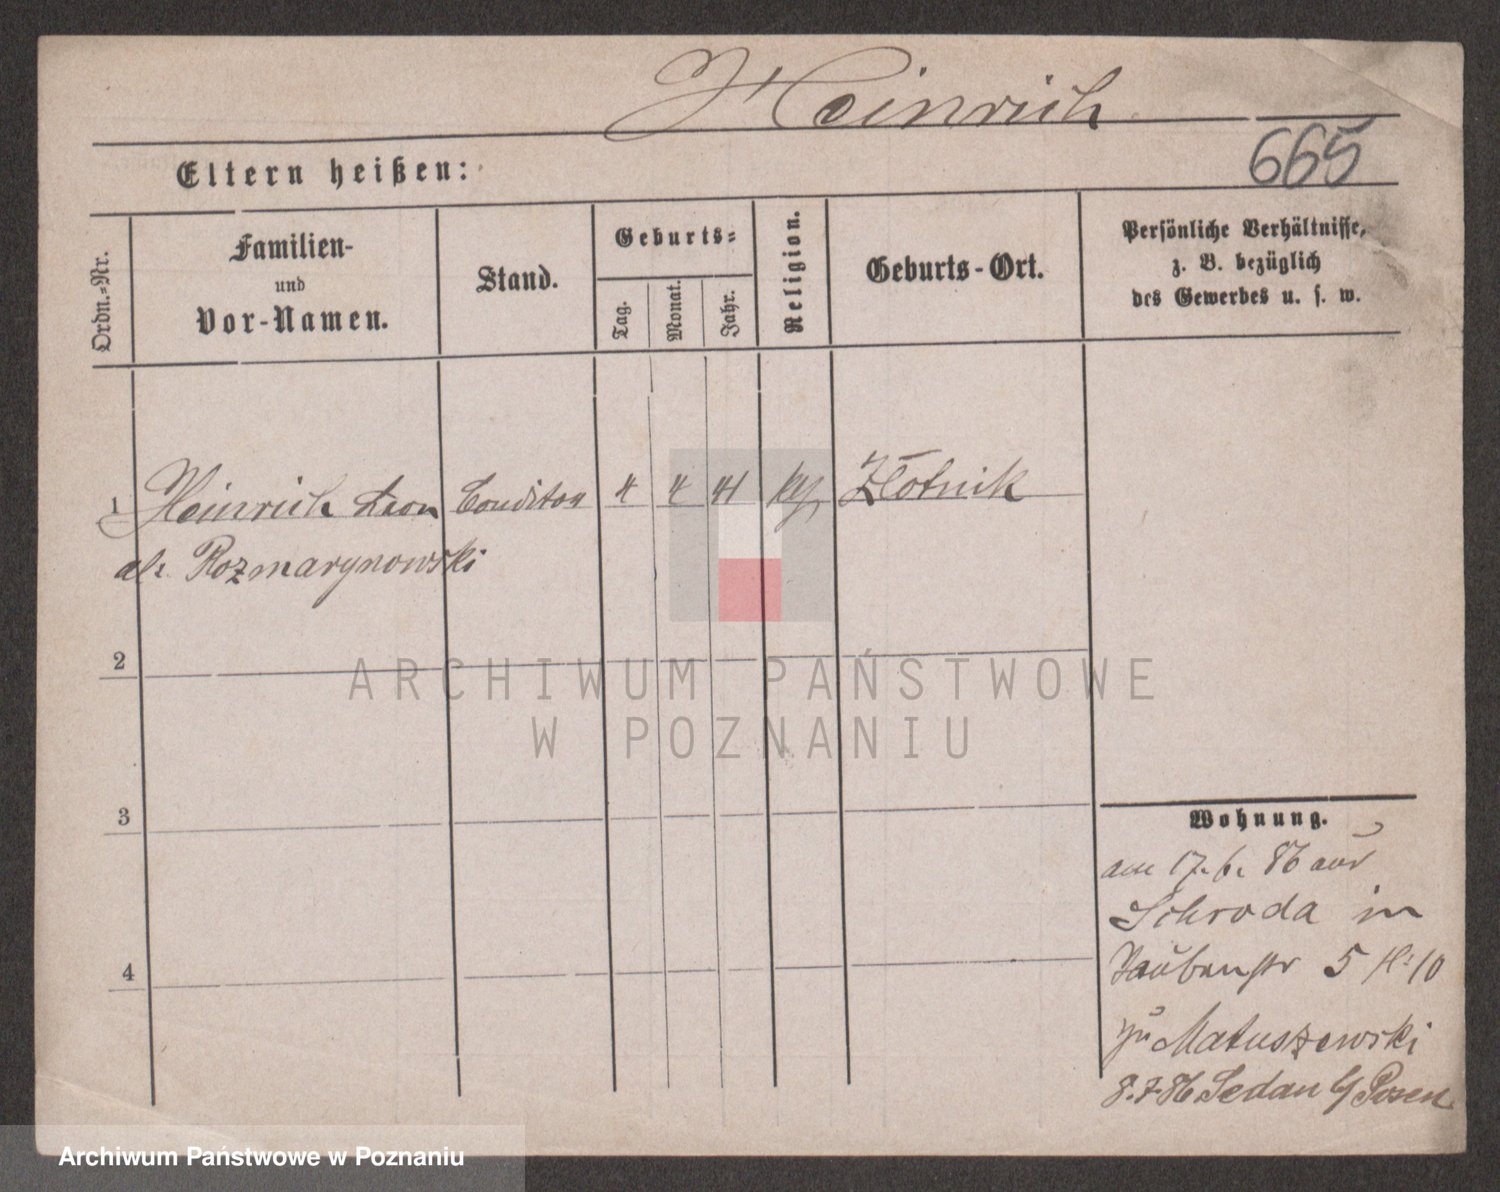 Heinrich
665
Eltern heißen:
Ordn.=Nr.
Familien-
und
Vor-Namen.
Stand.
Geburts=
Tag.
Monat.
Jahr.
Religion.
Geburts-Ort.
Persönliche Verhältnisse,
z. B. bezüglich
des Gewerbes u. s. w.
1 Heinrich Leon Conditor 4 4 41 Złotnik
als Rozmarynowski
2
ARCHIWUM PAŃSTWOWE
W POZNANIU
3
Wohnung.
am 17. 6. 86 aus
Schroda in
Taubenstr 5 H: 10
zu Matuszewski
8.7.86 Sedan b/ Posen
4
Archiwum Państwowe w Poznaniu